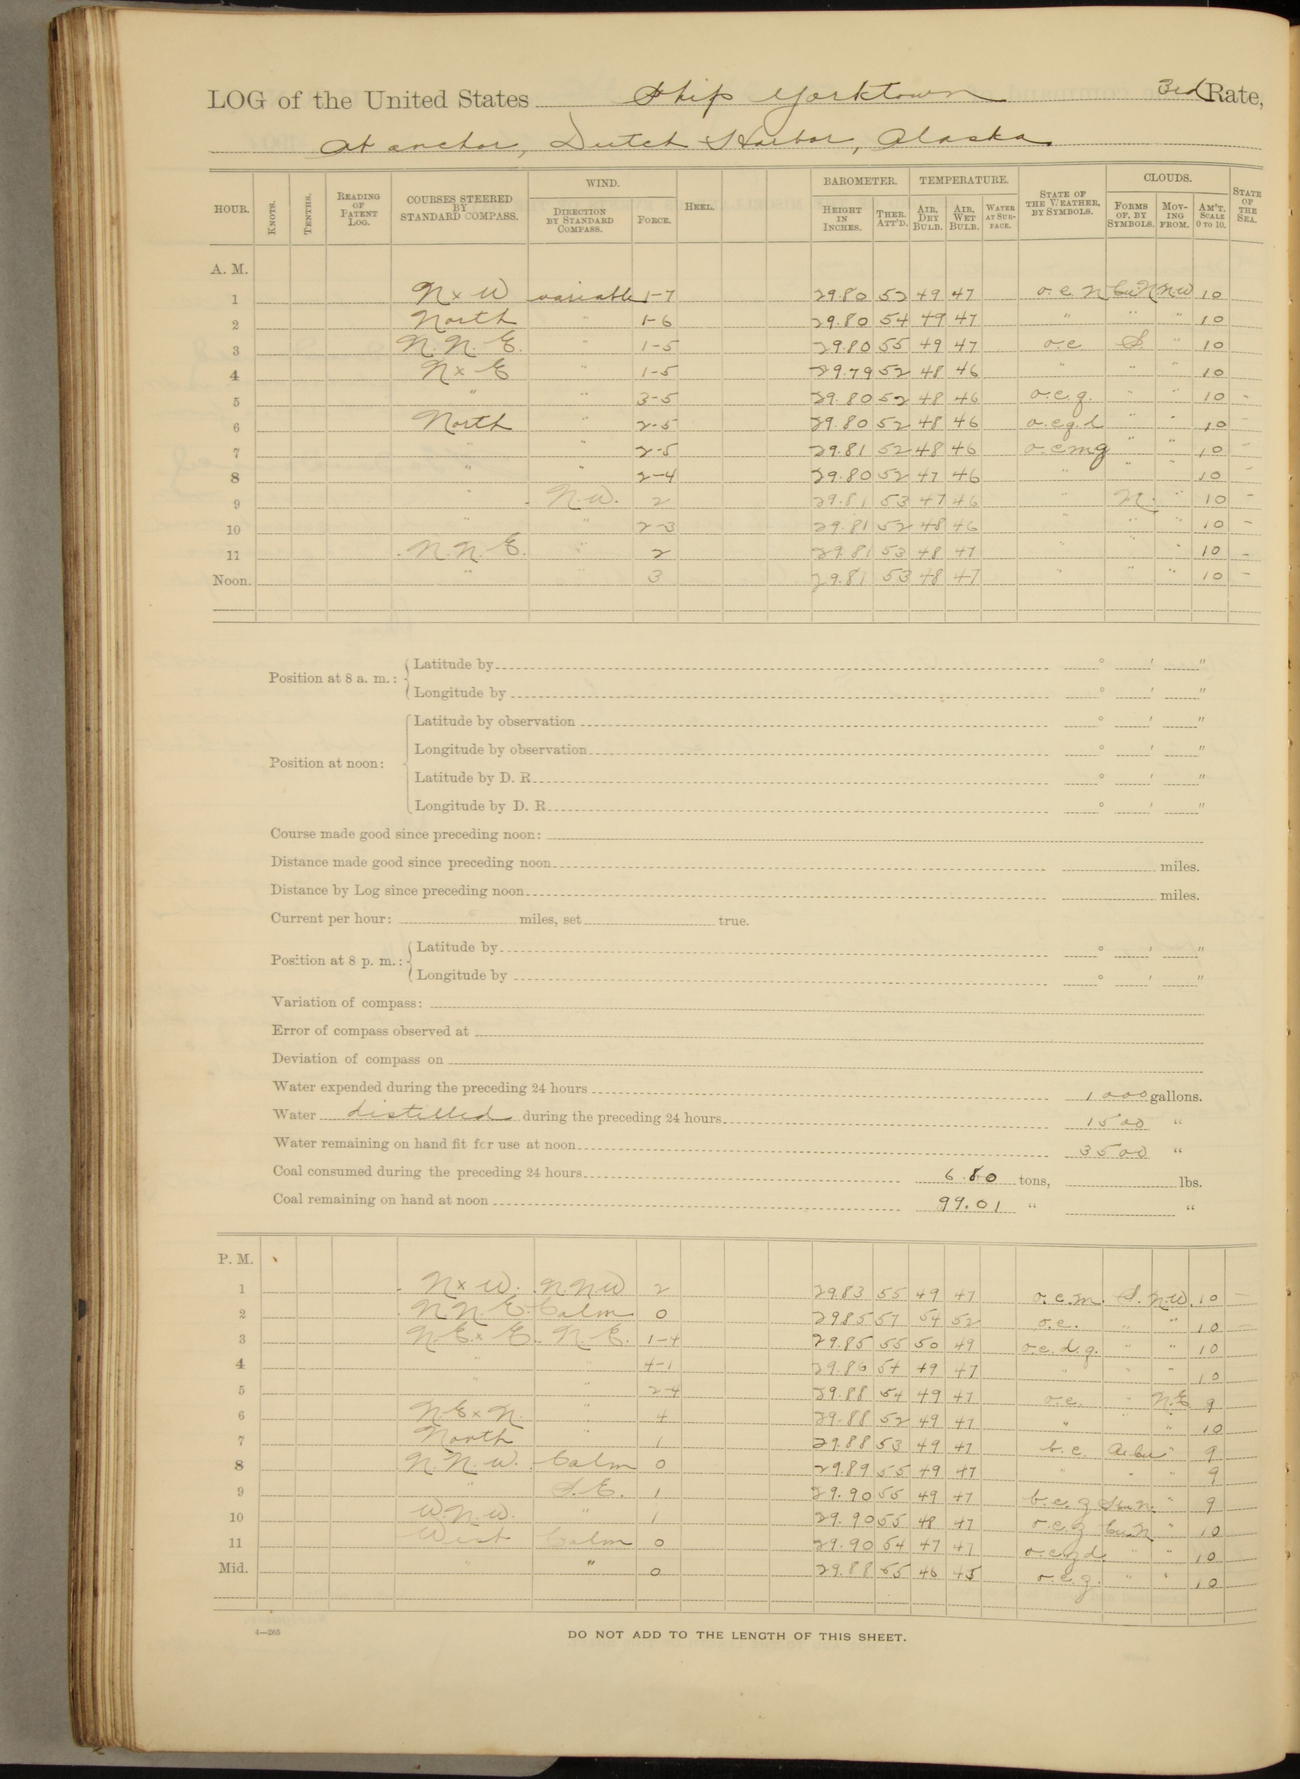 LOG of the United States Ship Yorktown 3rd Rate,
At anchor, Dutch Harbor, Alaska
HOUR. KNOTS. TENTHS. READING OF PATENT LOG. COURSES STEERED BY STANDARD COMPASS. WIND. DIRECTION BY STANDARD COMPASS. FORCE. HEEL. BAROMETER. HEIGHT IN INCHES. THER. ATT'D. TEMPERATURE. AIR, DRY BULB. AIR, WET BULB. WATER AT SURFACE. STATE OF THE WEATHER, BY SYMBOLS. CLOUDS. FORMS OF, BY SYMBOLS. MOVING FROM. AM'T. SCALE 0 TO 10. STATE OF THE SEA.
A. M.
1 N x W variable 1-7 29.80 52 49 47 o.c. Cu.N NW 10
2 North " 1-6 29.80 54 49 47 " " " 10
3 N.N.E. " 1-5 29.80 55 49 47 o.c S " 10
4 N x E " 1-5 29.79 52 48 46 " " " 10
5 " " 3-5 29.80 52 48 46 o.c.q. " " 10 -
6 North " 2-5 29.80 52 48 46 o.cq.d " " 10
7 " " 2-5 29.81 52 48 46 o.c.m.q " " 10 -
8 " " 2-4 29.80 52 47 46 " " " 10 -
9 " N.W. 2 29.81 53 47 46 " N. " 10 -
10 " " 2-3 29.81 52 48 46 " " " 10 -
11 N.N.E. " 2 29.81 53 48 47 " " " 10 -
Noon. " " 3 29.81 53 48 47 " " " 10 -
Position at 8 a. m.: Latitude by ° ' "
Longitude by ° ' "
Position at noon: Latitude by observation ° ' "
Longitude by observation ° ' "
Latitude by D. R. ° ' "
Longitude by D. R. ° ' "
Course made good since preceding noon:
Distance made good since preceding noon miles.
Distance by Log since preceding noon miles.
Current per hour: miles, set true.
Position at 8 p. m.: Latitude by ° ' "
Longitude by ° ' "
Variation of compass:
Error of compass observed at
Deviation of compass on
Water expended during the preceding 24 hours 1000 gallons.
Water distilled during the preceding 24 hours 1500 "
Water remaining on hand fit for use at noon 3500 "
Coal consumed during the preceding 24 hours 6.80 tons, lbs.
Coal remaining on hand at noon 99.01 " "
P. M.
1 N x W. N.N.W 2 29.83 55 49 47 o.c.m. S. N.W. 10 -
2 N N.E. Calm 0 29.85 57 54 52 o.c. " " 10 -
3 N.E. x E. N.E. 1-4 29.85 55 50 49 o.c.d.q. " " 10
4 " " 4-1 29.86 54 49 47 " " " 10
5 " " 2-4 29.88 54 49 47 o.c. " N.E 9
6 N.E x N. " 4 29.88 52 49 47 " " " 10
7 North " 1 29.88 53 49 47 b.c. " 9
8 N.N.W. Calm 0 29.89 55 49 47 " " " 9
9 " S.E. 1 29.90 55 49 47 b.c.q " 9
10 W.N.W. " 1 29.90 55 48 47 o.c.q Cu.N " 10
11 West Calm 0 29.90 54 47 47 o.c.q.d. " " 10
Mid. " " 0 29.88 55 46 45 o.c.q. " " 10
4—265
DO NOT ADD TO THE LENGTH OF THIS SHEET.